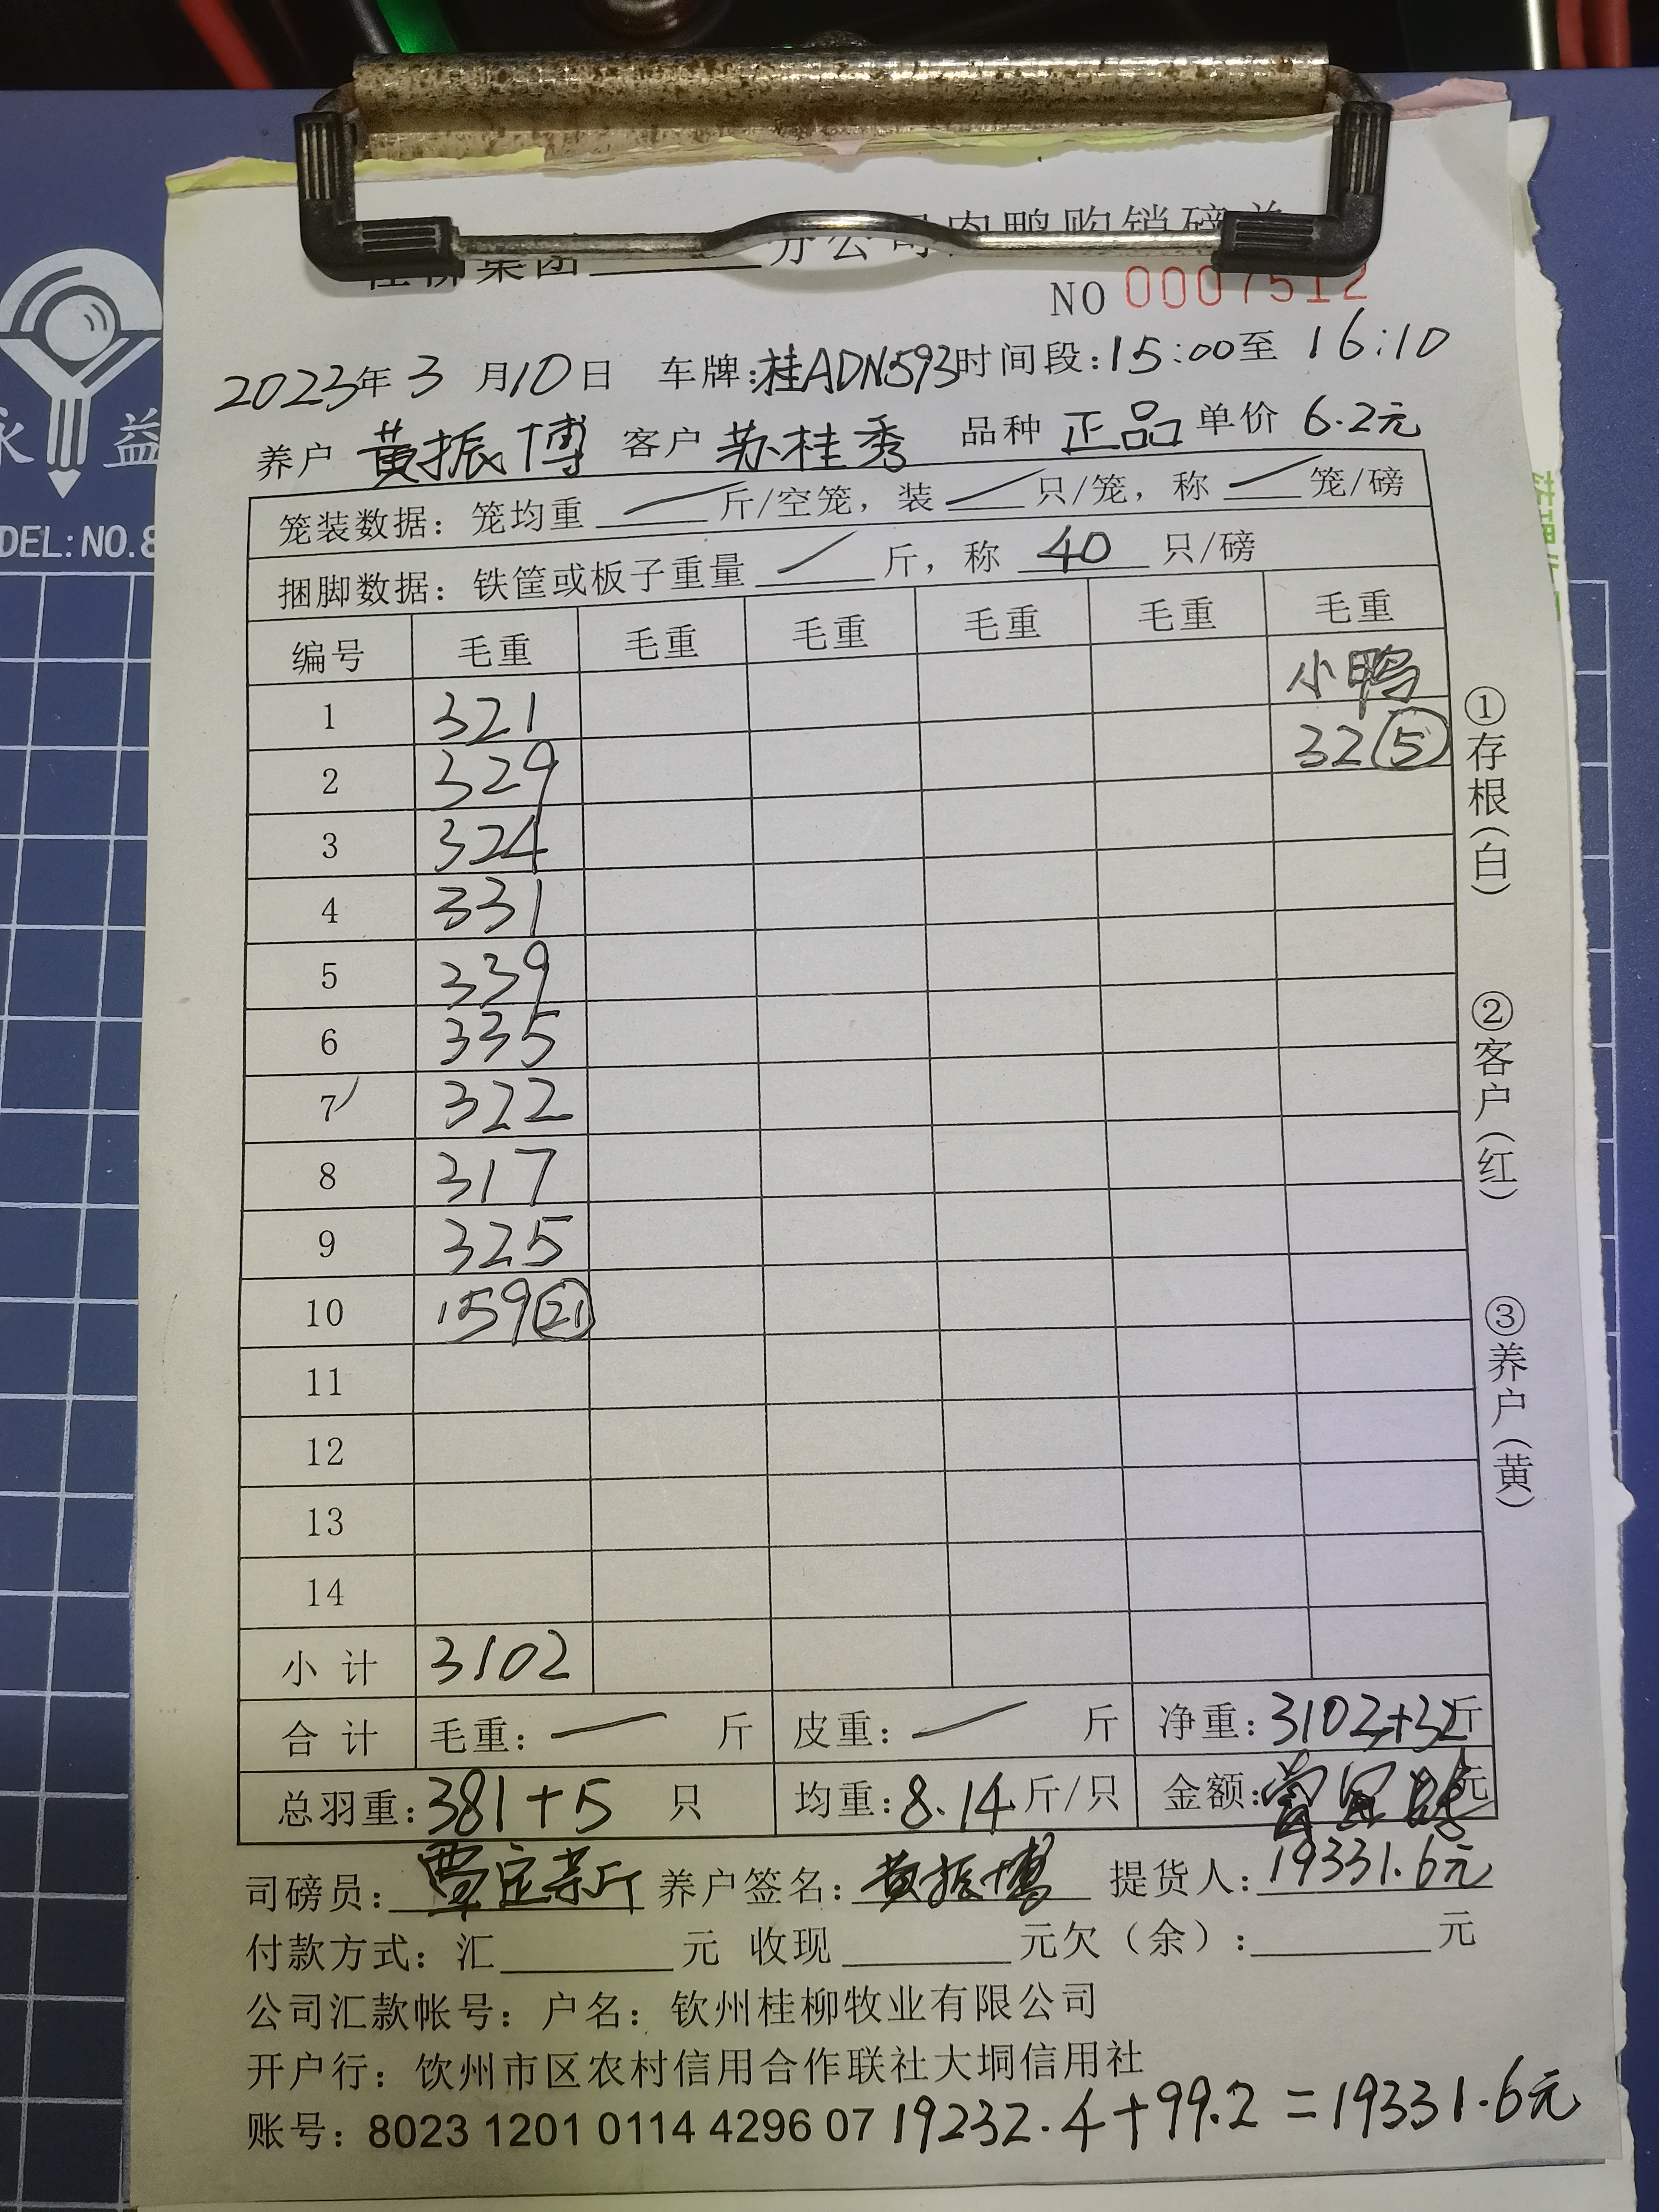 桂柳集团______分公司肉鸭购销磅单
NO 0007512
2023年 3 月10日 车牌:桂ADN593时间段:15:00至 16:10
养户 黄振博 客户 苏桂秀 品种 正品 单价 6.2元
笼装数据: 笼均重 — 斤/空笼, 装 — 只/笼, 称 — 笼/磅
捆脚数据: 铁筐或板子重量 — 斤, 称 40 只/磅
编号 毛重 毛重 毛重 毛重 毛重 毛重
1 321 小鸭
2 329 32⑤
3 324
4 331
5 339
6 335
7 322
8 317
9 325
10 159㉑
11
12
13
14
小 计 3102
合 计 毛重: — 斤 皮重: — 斤 净重: 3102+32斤
总羽重: 381+5 只 均重: 8.14斤/只 金额: 元
司磅员: 养户签名: 黄振博 提货人: 19331.6元
付款方式: 汇______元 收现______元欠(余):______元
公司汇款帐号: 户名: 钦州桂柳牧业有限公司
开户行: 钦州市区农村信用合作联社大垌信用社
账号: 8023 1201 0114 4296 07 19232.4+99.2=19331.6元
①存根(白)
②客户(红)
③养户(黄)
永 益
DEL: NO.8